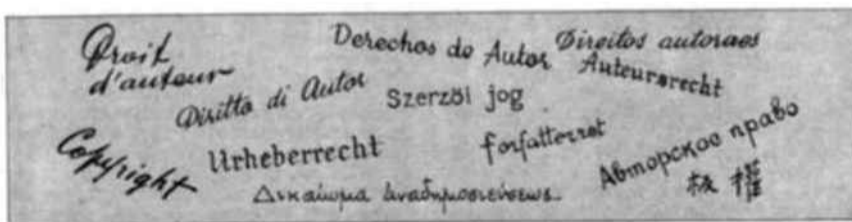 Droit
d'auteur
Derechos de Autor
Direitos autoraes
Auteursrecht
Diritto di Autor
Szerzöi jog
Copyright
Urheberrecht
forfatterret
Авторское право
Δικαίωμα
板權